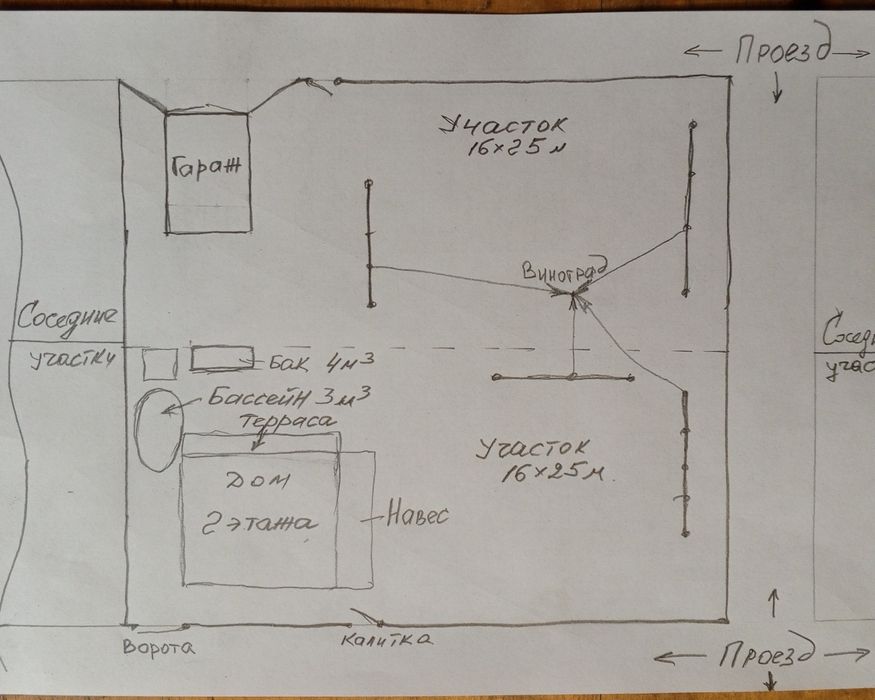 ← Проезд →
Участок
16×25 м
Гараж
Виноград
Соседние
участки
Бак 4м³
Соседн
учас
Бассейн 3м³
терраса
Участок
16×25м.
Дом
2 этажа
Навес
Ворота
Калитка
← Проезд →